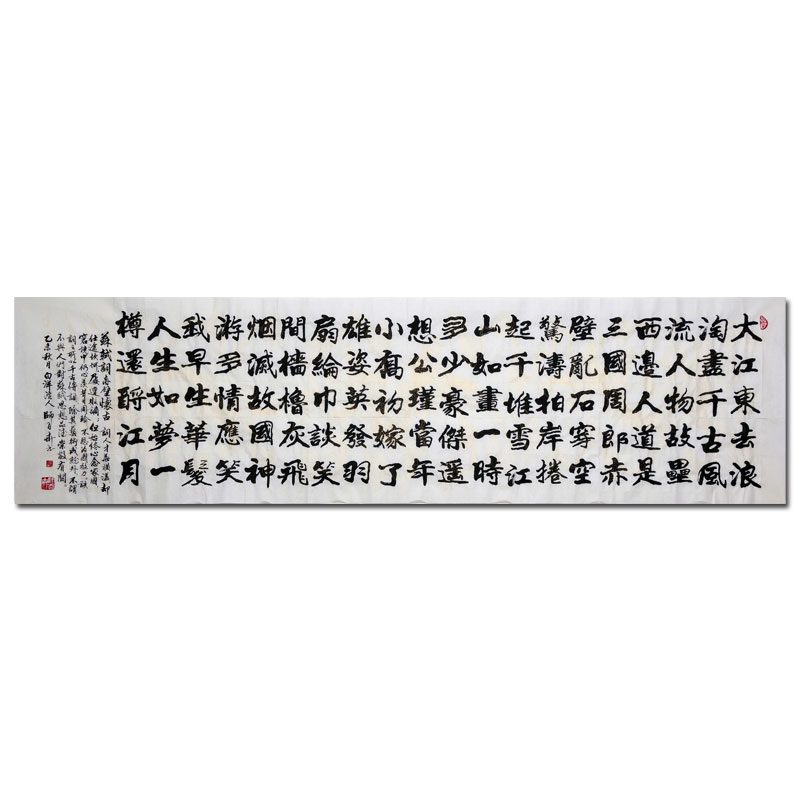 大江東去浪
淘盡千古風
流人物故壘
西邊人道是
三國周郎赤
壁亂石穿空
驚濤拍岸捲
起千堆雪江
山如畫一時
多少豪傑遥
想公瑾當年
小喬初嫁了
雄姿英發羽
扇綸巾談笑
間檣櫓灰飛
烟滅故國神
游多情應笑
我早生華髮
人生如夢一
樽還酹江月
蘇軾詞赤壁懷古 詞人才華横溢却
仕途坎坷屢遭貶謫但始終心念家國
乙未秋月白洋淀人